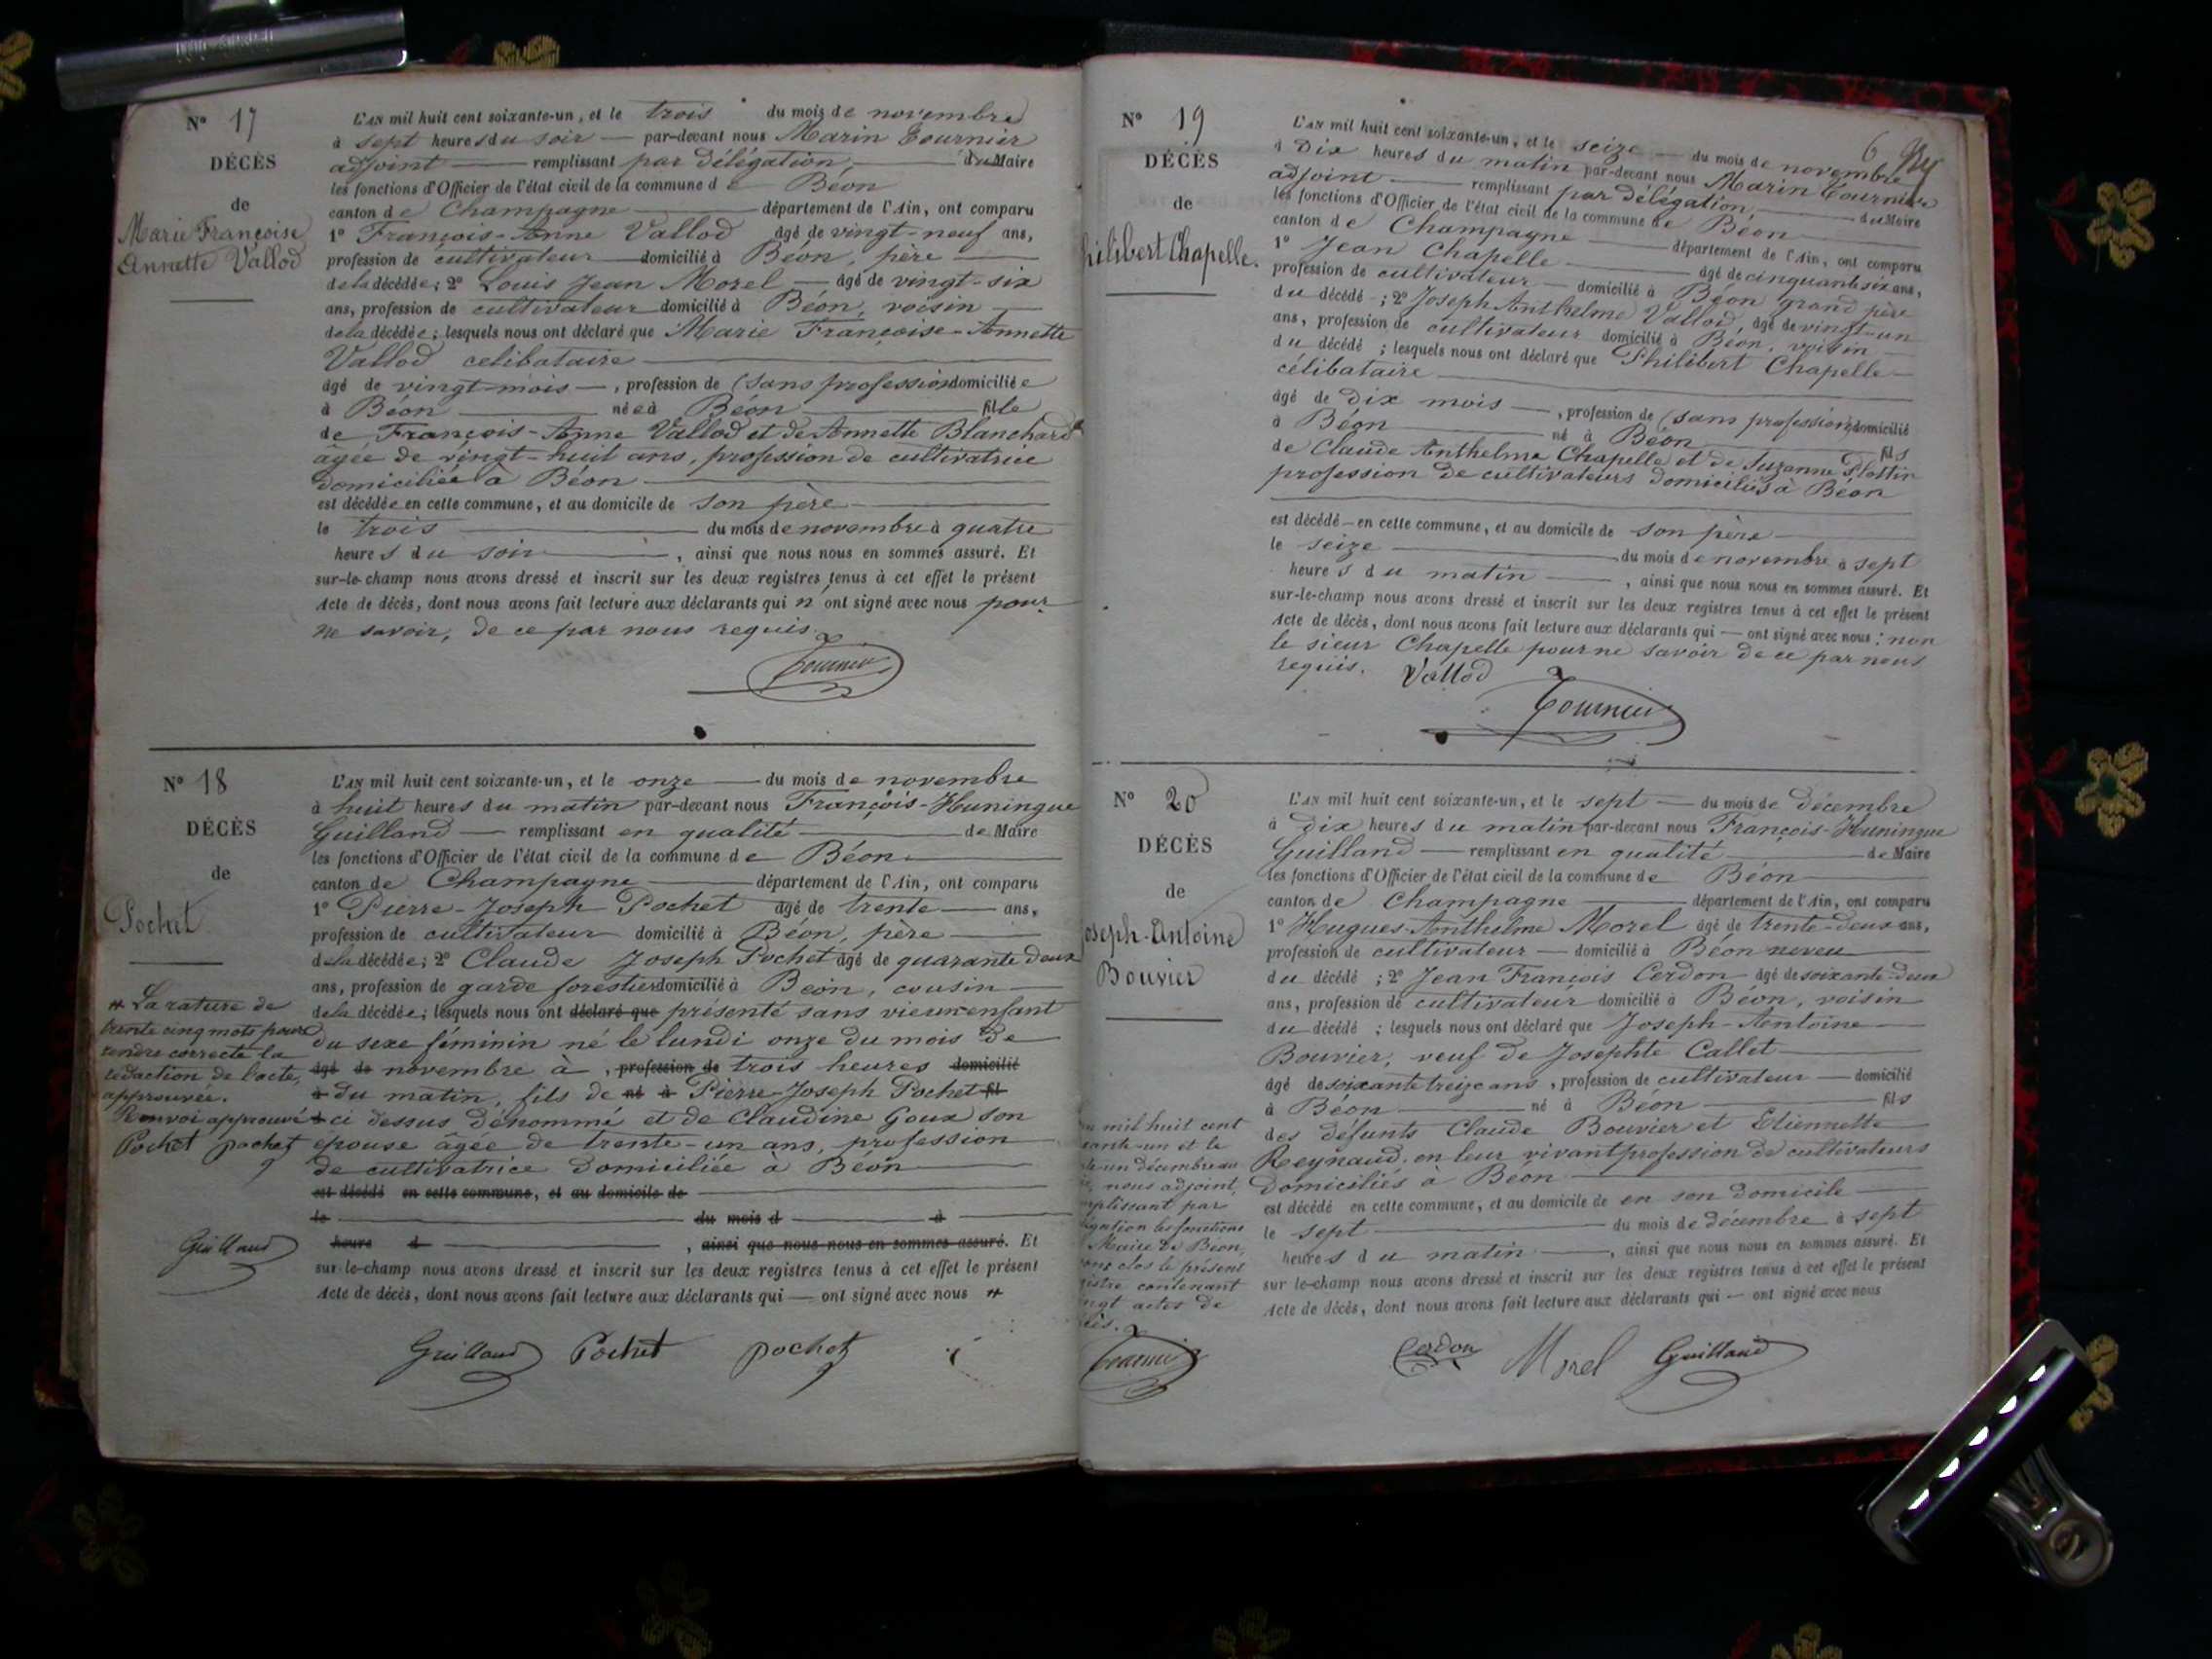 N° 17
DÉCÈS
de
Marie Françoise
Annette Vallod
L'AN mil huit cent soixante-un, et le trois du mois de novembre
à sept heures du soir — par-devant nous Marin Tournier
adjoint — remplissant par délégation — du Maire
les fonctions d'Officier de l'état civil de la commune de Béon
canton de Champagne — département de l'Ain, ont comparu
1° François-Anne Vallod âgé de vingt-neuf ans,
profession de cultivateur domicilié à Béon, père —
de la décédée; 2° Louis Jean Morel — âgé de vingt-six
ans, profession de cultivateur domicilié à Béon, voisin —
de la décédée; lesquels nous ont déclaré que Marie Françoise-Annette
Vallod celibataire —
âgé de vingt-mois —, profession de (sans profession) domiciliée
à Béon — née à Béon — fille
de François-Anne Vallod et de Annette Blanchard
âgée de vingt-huit ans, profession de cultivatrice
domiciliée à Béon —
est décédée en cette commune, et au domicile de son père —
le trois — du mois de novembre à quatre
heures du soir —, ainsi que nous nous en sommes assuré. Et
sur-le-champ nous avons dressé et inscrit sur les deux registres tenus à cet effet le présent
Acte de décès, dont nous avons fait lecture aux déclarants qui n'ont signé avec nous pour
ne savoir, de ce par nous requis.
Tournier
N° 18
DÉCÈS
de
Pochet
# La rature de
trente cinq mots pour
rendre correcte la
rédaction de l'acte,
approuvée.
Renvoi approuvé
Pochet pochet
Guilland
L'AN mil huit cent soixante-un, et le onze — du mois de novembre
à huit heures du matin par-devant nous François-Huningue
Guilland — remplissant en qualité — de Maire
les fonctions d'Officier de l'état civil de la commune de Béon —
canton de Champagne — département de l'Ain, ont comparu
1° Pierre-Joseph Pochet âgé de trente — ans,
profession de cultivateur domicilié à Béon, père —
de la décédée; 2° Claude Joseph Pochet âgé de quarante deux
ans, profession de garde forestier domicilié à Béon, cousin —
de la décédée; lesquels nous ont déclaré que présenté sans vie un enfant
du sexe féminin né le lundi onze du mois de
âgé de novembre à, profession de trois heures domicilié
à du matin, fils de né à Pierre-Joseph Pochet fil
d ci dessus dénommé et de Claudine Goux son
epouse âgée de trente-un ans, profession
de cultivatrice domiciliée à Béon —
est décédé en cette commune, et au domicile de —
le — du mois d — à —
heure d —, ainsi que nous nous en sommes assuré. Et
sur-le-champ nous avons dressé et inscrit sur les deux registres tenus à cet effet le présent
Acte de décès, dont nous avons fait lecture aux déclarants qui — ont signé avec nous #
Guilland Pochet pochet
6
N° 19
DÉCÈS
de
hilibert Chapelle.
L'AN mil huit cent soixante-un, et le seize — du mois de novembre
à Dix heures du matin par-devant nous Marin Tournier
adjoint — remplissant par délégation — du Maire
les fonctions d'Officier de l'état civil de la commune de Béon —
canton de Champagne — département de l'Ain, ont comparu
1° Jean Chapelle — âgé de cinquante six ans,
profession de cultivateur — domicilié à Béon grand père
du décédé; 2° Joseph Anthelme Vallod, âgé de vingt-un
ans, profession de cultivateur domicilié à Béon, voisin —
du décédé; lesquels nous ont déclaré que Philibert Chapelle —
célibataire —
âgé de Dix mois —, profession de (sans profession) domicilié
à Béon — né à Béon — fils
de Claude Anthelme Chapelle et de Suzanne Flottin
profession de cultivateurs domiciliés à Béon
est décédé — en cette commune, et au domicile de son père —
le seize — du mois de novembre à sept
heures du matin —, ainsi que nous nous en sommes assuré. Et
sur-le-champ nous avons dressé et inscrit sur les deux registres tenus à cet effet le présent
Acte de décès, dont nous avons fait lecture aux déclarants qui — ont signé avec nous: non
le sieur Chapelle pour ne savoir de ce par nous
requis. Vallod
Tournier
N° 20
DÉCÈS
de
oseph-Antoine
Bouvier
mil huit cent
ante-un et le
un décembre au
nous adjoint,
mplissant par
égation les fonctions
Maire de Béon,
ons clos le présent
istre contenant
ngt actes de
cès.
Tournier
L'AN mil huit cent soixante-un, et le sept — du mois de décembre
à Dix heures du matin par-devant nous François-Huningue
Guilland — remplissant en qualité — de Maire
les fonctions d'Officier de l'état civil de la commune de Béon —
canton de Champagne — département de l'Ain, ont comparu
1° Hugues-Anthelme Morel âgé de trente-deux ans,
profession de cultivateur — domicilié à Béon neveu
du décédé; 2° Jean François Cerdon âgé de soixante-deux
ans, profession de cultivateur domicilié à Béon, voisin
du décédé; lesquels nous ont déclaré que Joseph-Antoine —
Bouvier, veuf de Josephte Callet —
âgé de soixante treize ans, profession de cultivateur — domicilié
à Béon — né à Béon — fils
des défunts Claude Bouvier et Etiennette
Reynaud, en leur vivant profession de cultivateurs
domiciliés à Béon —
est décédé en cette commune, et au domicile de en son domicile —
le sept — du mois de décembre à sept
heures du matin —, ainsi que nous nous en sommes assuré. Et
sur-le-champ nous avons dressé et inscrit sur les deux registres tenus à cet effet le présent
Acte de décès, dont nous avons fait lecture aux déclarants qui — ont signé avec nous
Cerdon Morel Guilland